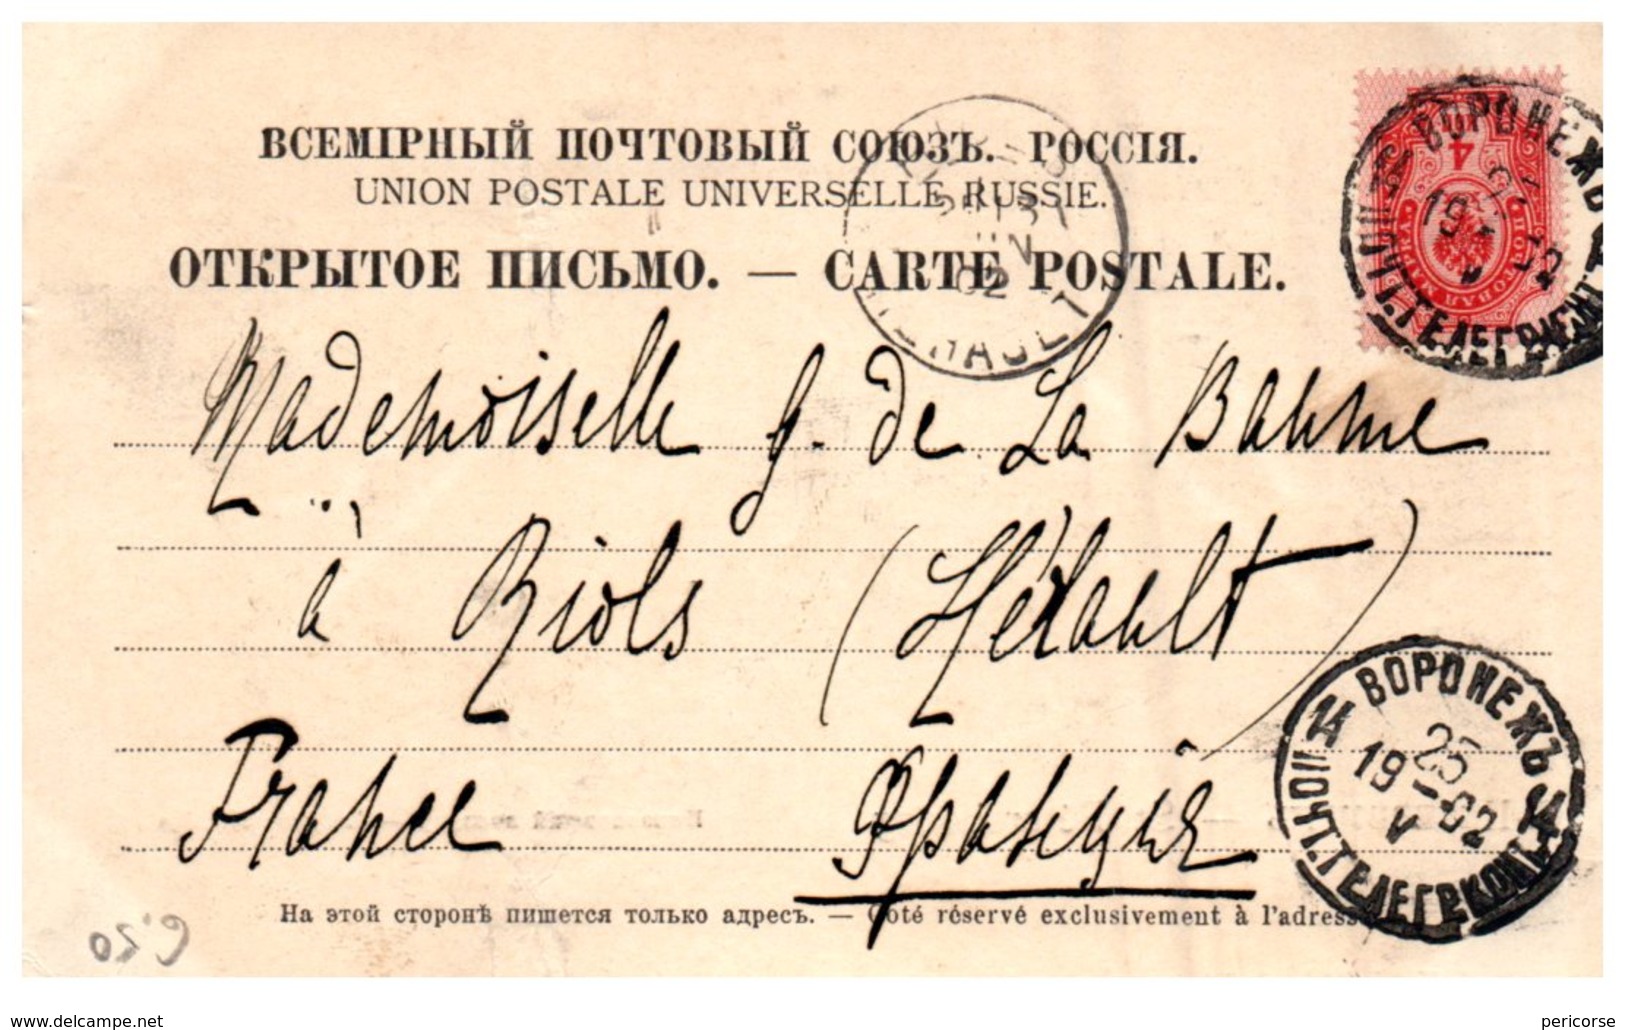 ВСЕМІРНЫЙ ПОЧТОВЫЙ СОЮЗЪ. РОССІЯ.
UNION POSTALE UNIVERSELLE RUSSIE.
ОТКРЫТОЕ ПИСЬМО. — CARTE POSTALE.
4
ПОЧТОВАЯ МАРКА
ВОРОНЕЖЪ
19 02
V
ПОЧТ.ТЕЛЕГР.КОНТ.
02
HERAULT
Mademoiselle G. de La Bahme
à Riols (Hérault)
France Франція
ВОРОНЕЖЪ
14 14
25
19 02
V
ПОЧТ.ТЕЛЕГР.КОНТ.
На этой сторонѣ пишется только адресъ. — Côté réservé exclusivement à l'adresse
www.delcampe.net
pericorse